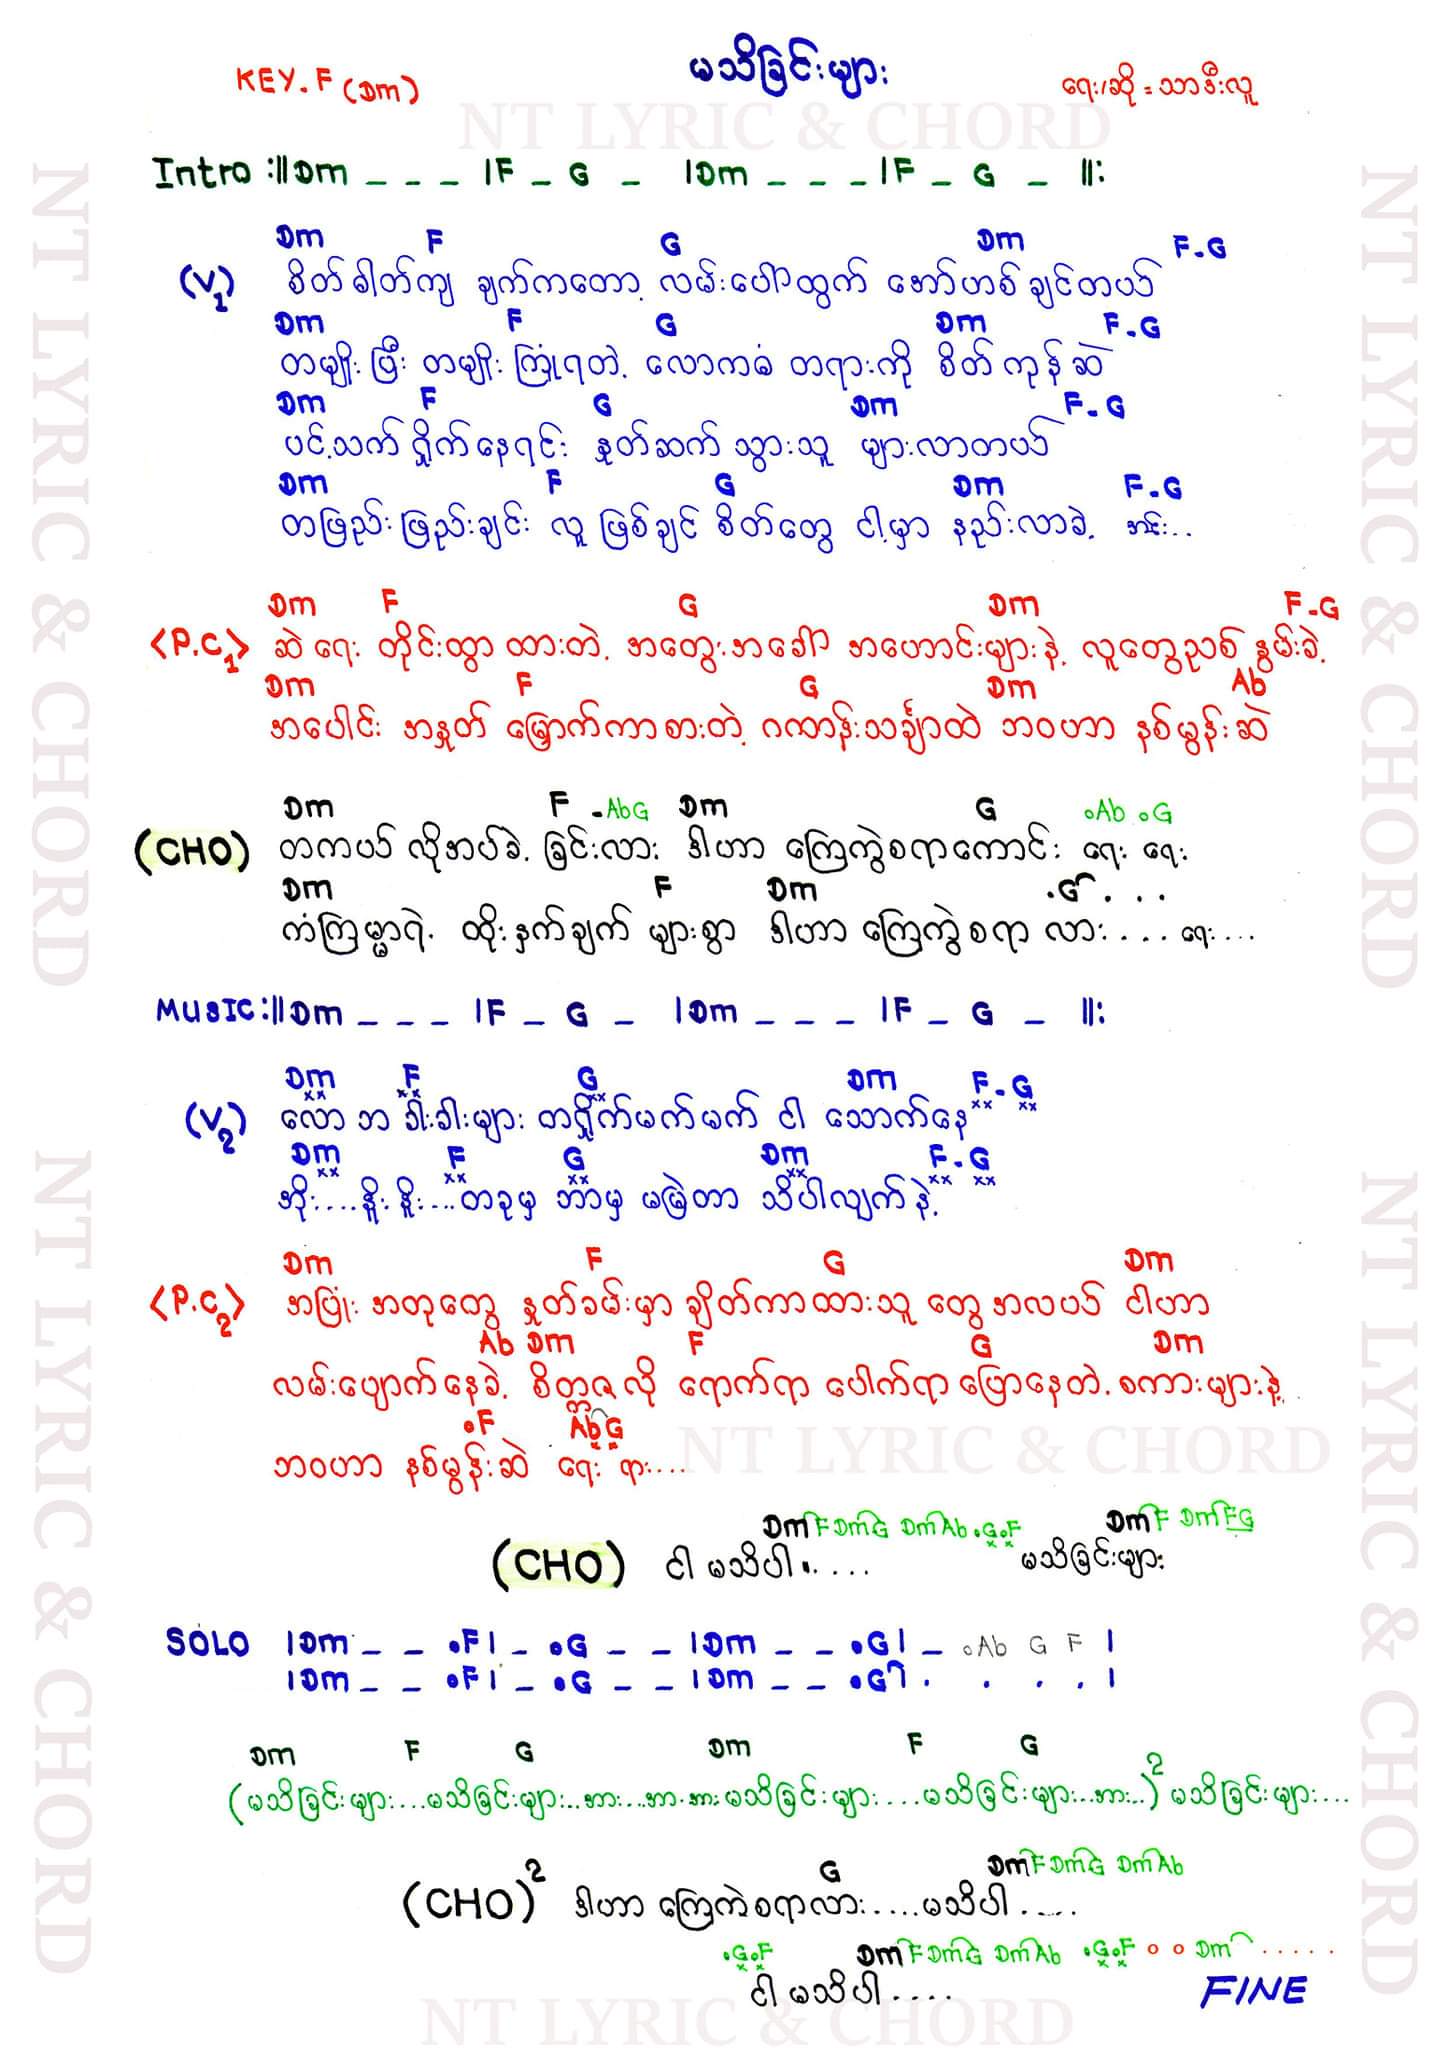 KEY. F (Dm)
မသိခြင်းများ
ရေး/ဆို = သာဒီးလူ
NT LYRIC & CHORD
Intro :||Dm _ _ _ |F _ G _ |Dm _ _ _ |F _ G _ ||:
Dm F G Dm F-G
(V1) စိတ်ဓါတ်ကျ ချက်ကတော့ လမ်းပေါ်ထွက် အော်ဟစ် ချင်တယ်
Dm F G Dm F-G
တမျိုး ပြီး တမျိုး ကြုံရတဲ့ လောကဓံ တရားကို စိတ်ကုန်ဆဲ
Dm F G Dm F-G
ပင့်သက် ရှိုက်နေရင်း နှုတ်ဆက် သွားသူ များလာတယ်
Dm F G Dm F-G
တဖြည်း ဖြည်းချင်း လူ ဖြစ်ချင် စိတ်တွေ ငါ့မှာ နည်းလာခဲ့ အင်း..
Dm F G Dm F-G
<P.C1> ဆဲ ရေး တိုင်းထွာ ထားတဲ့ အတွေးအခေါ် အဟောင်းများနဲ့ လူတွေညစ် နွမ်းခဲ့
Dm F G Dm Ab
အပေါင်း အနှုတ် မြှောက်ကာစားတဲ့ ဂဏာန်းသင်္ချာထဲ ဘဝဟာ နစ်မွန်းဆဲ
Dm F -AbG Dm G Ab G
(CHO) တကယ် လိုအပ်ခဲ့ ခြင်းလား ဒါဟာ ကြေကွဲစရာကောင်း ရေး ရေး
Dm F Dm .G . . .
ကံကြမ္မာရဲ့ ထိုးနှက်ချက် များစွာ ဒါဟာ ကြေကွဲစရာ လား.... ရေး...
MUSIC:||Dm _ _ _ |F _ G _ |Dm _ _ _ |F _ G _ ||:
Dm F G Dm F-G
(V2) လော ဘ ခါးခါးများ တရှိုက်မက်မက် ငါ သောက်နေ
Dm F G Dm F-G
အိုး....နိုး နိုး...တခုမှ ဘာမှ မမြဲတာ သိပါလျက်နဲ့
Dm F G Dm
<P.C2> အပြုံး အတုတွေ နှုတ်ခမ်းမှာ ချိတ်ကာထားသူ တွေ အလယ် ငါဟာ
Ab Dm F G Dm
လမ်းပျောက်နေခဲ့ စိတ္တဇ လို ရောက်ရာ ပေါက်ရာ ပြောနေတဲ့ စကားများနဲ့
.F AbG
ဘဝဟာ နစ်မွန်းဆဲ ရေး ရား....
NT LYRIC & CHORD
DmF DmG DmAb .G.F DmF DmFG
(CHO) ငါ မသိပါ...... မသိခြင်းများ
SOLO |Dm _ _ .F| _ .G _ _ |Dm _ _ .G| _ .Ab G F |
|Dm _ _ .F| _ .G _ _ |Dm _ _ .G| . . . . |
Dm F G Dm F G
(မသိခြင်းများ...မသိခြင်းများ...အား...အာ.အား မသိခြင်းများ....မသိခြင်းများ...အား..)2 မသိခြင်းများ....
G DmF DmG DmAb
(CHO)2 ဒါဟာ ကြေကွဲစရာလား.....မသိပါ.....
.G.F DmF DmG DmAb .G.F Dm ......
ငါ မသိပါ....
FINE
NT LYRIC & CHORD
NT LYRIC & CHORD
NT LYRIC & CHORD
NT LYRIC & CHORD
NT LYRIC & CHORD